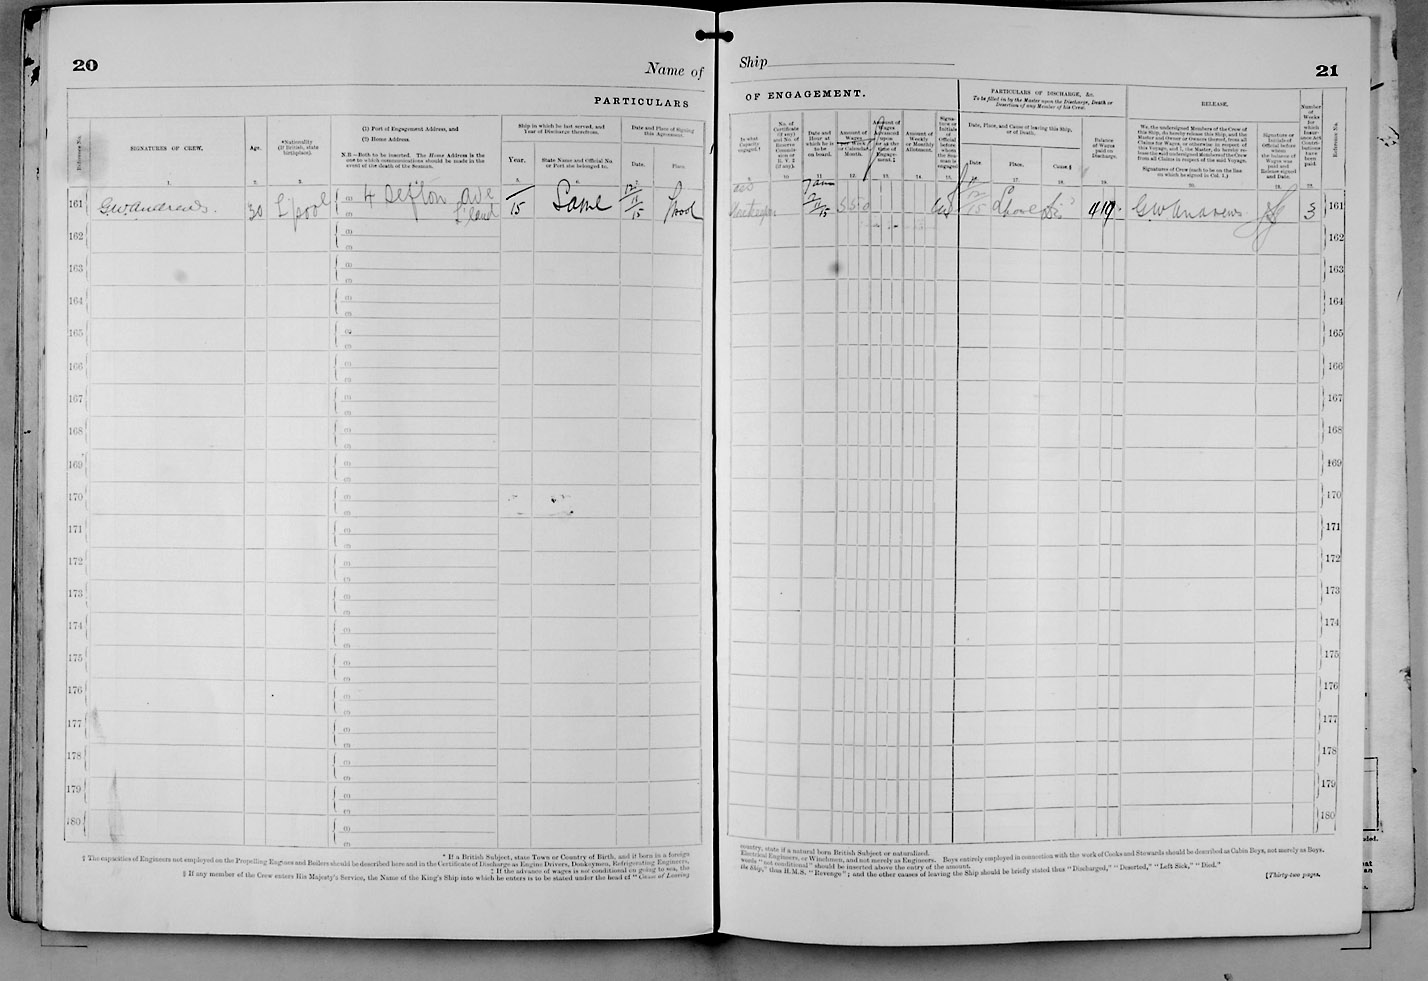 20
Name of
PARTICULARS
Reference No.
SIGNATURES OF CREW.
Age.
*Nationality
(If British, state
birthplace).
(1) Port of Engagement Address, and
(2) Home Address.
N.B.—Both to be inserted. The Home Address is the
one to which communications should be made in the
event of the death of the Seaman.
Ship in which he last served, and
Year of Discharge therefrom.
Year.
State Name and Official No.
or Port she belonged to.
Date and Place of Signing
this Agreement.
Date.
Place.
1.
2.
3.
161
G W Andrews.
30
L'pool
(1) 4 Sefton Ave
(2) L'land
15
Same
12/11/15
L'pool
162
163
164
165
166
167
168
169
170
171
172
173
174
175
176
177
178
179
180
* If a British Subject, state Town or Country of Birth, and if born in a foreign
† The capacities of Engineers not employed on the Propelling Engines and Boilers should be described here and in the Certificate of Discharge as Engine Drivers, Donkeymen, Refrigerating Engineers,
‡ If the advance of wages is not conditional on going to sea, the
§ If any member of the Crew enters His Majesty's Service, the Name of the King's Ship into which he enters is to be stated under the head of "Cause of Leaving
Ship
21
OF ENGAGEMENT.
In what
Capacity
engaged.†
No. of
Certificate
(if any)
and No. of
Reserve
Commis-
sion or
R. V. 2
(if any).
Date and
Hour at
which he is
to be
on board.
Amount of
Wages
per Week
or Calendar
Month.
Amount of
Wages
Advanced
upon
or at the
time of
Engage-
ment.‡
Amount of
Weekly
or Monthly
Allotment.
Signa-
ture or
Initials
of
Official
before
whom
the Sea-
man is
engaged.
PARTICULARS OF DISCHARGE, &c.
To be filled in by the Master upon the Discharge, Death or
Desertion of any Member of his Crew.
Date, Place, and Cause of leaving this Ship,
or of Death.
Date.
Place.
Cause.§
Balance
of Wages
paid on
Discharge.
RELEASE.
We, the undersigned Members of the Crew of
this Ship, do hereby release this Ship, and the
Master and Owner or Owners thereof, from all
Claims for Wages, or otherwise in respect of
this Voyage, and I, the Master, do hereby re-
lease the said undersigned Members of the Crew
from all Claims in respect of the said Voyage.
Signatures of Crew (each to be on the line
on which he signed in Col. 1.)
Signature or
Initials of
Official before
whom
the balance of
Wages was
paid and
Release signed
and Date.
Number
of
Weeks
for
which
Insur-
ance Act
Contri-
butions
have
been
paid.
Reference No.
9.
10.
11.
12.
13.
14.
15.
16.
17.
18.
19.
20.
21.
22.
7 am
12/11/15
5 5 0
L'pool
Dis
4 19
G W Andrews
3
161
162
163
164
165
166
167
168
169
170
171
172
173
174
175
176
177
178
179
180
country, state if a natural born British Subject or naturalized.
Electrical Engineers, or Winchmen, and not merely as Engineers. Boys entirely employed in connection with the work of Cooks and Stewards should be described as Cabin Boys, not merely as Boys.
words "not conditional" should be inserted above the entry of the amount.
the Ship," thus H.M.S. "Revenge"; and the other causes of leaving the Ship should be briefly stated thus "Discharged," "Deserted," "Left Sick," "Died."
[Thirty-two pages.